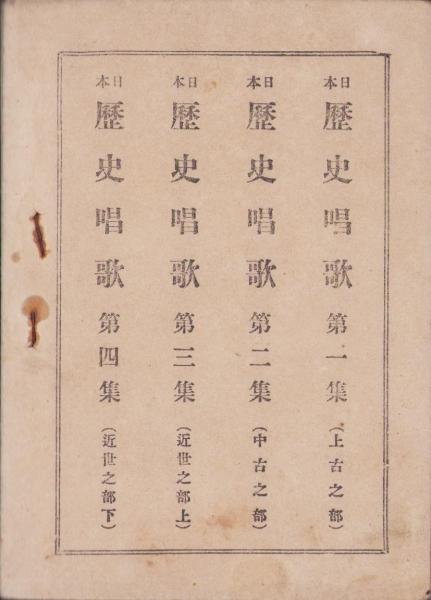 日本歴史唱歌第一集（上古之部）
日本歴史唱歌第二集（中古之部）
日本歴史唱歌第三集（近世之部上）
日本歴史唱歌第四集（近世之部下）